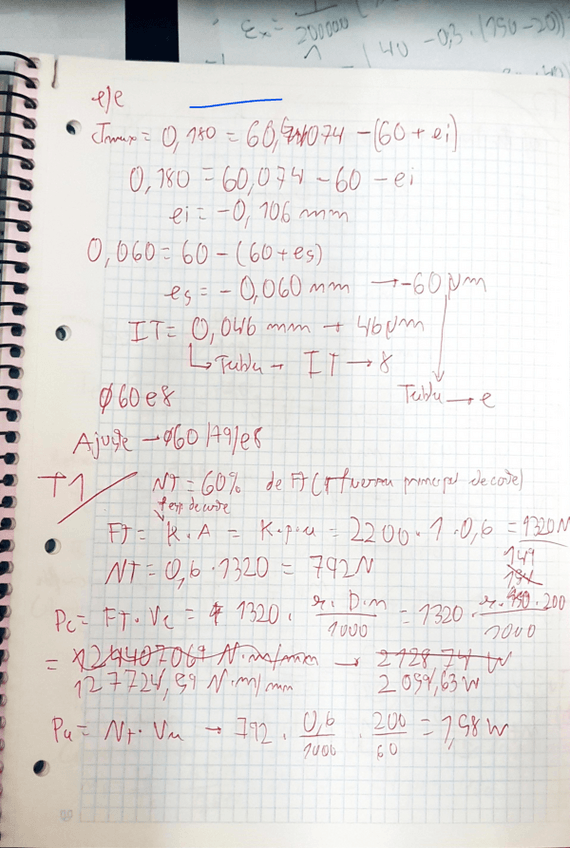 εx = 1/200000
(40 - 0,3 · (190 - 20))
eje
Jmax = 0,180 = 60,074 - (60 + ei)
0,180 = 60,074 - 60 - ei
ei = -0,106 mm
0,060 = 60 - (60 + es)
es = -0,060 mm → -60 μm
IT = 0,046 mm → 46 μm
↳ Tabla → IT → 8
Tabla → e
Ø60e8
Ajuste → Ø60 H9/e8
T1
NT = 60% de FT (→ fuerza principal de corte)
↑ esp de corte
FT = K · A = K · p · u = 2200 · 1 · 0,6 = 1320 N
NT = 0,6 · 1320 = 792 N
149
Pc = FT · Vc = 1320 · π · D · n / 1000 = 1320 · π · 200 / 1000
= 124407069 N·m/mm → 2128,74 W
127724,59 N·m/mm 2094,63 W
Pa = NT · Va → 792 · 0,6/1000 · 200/60 = 1,58 W